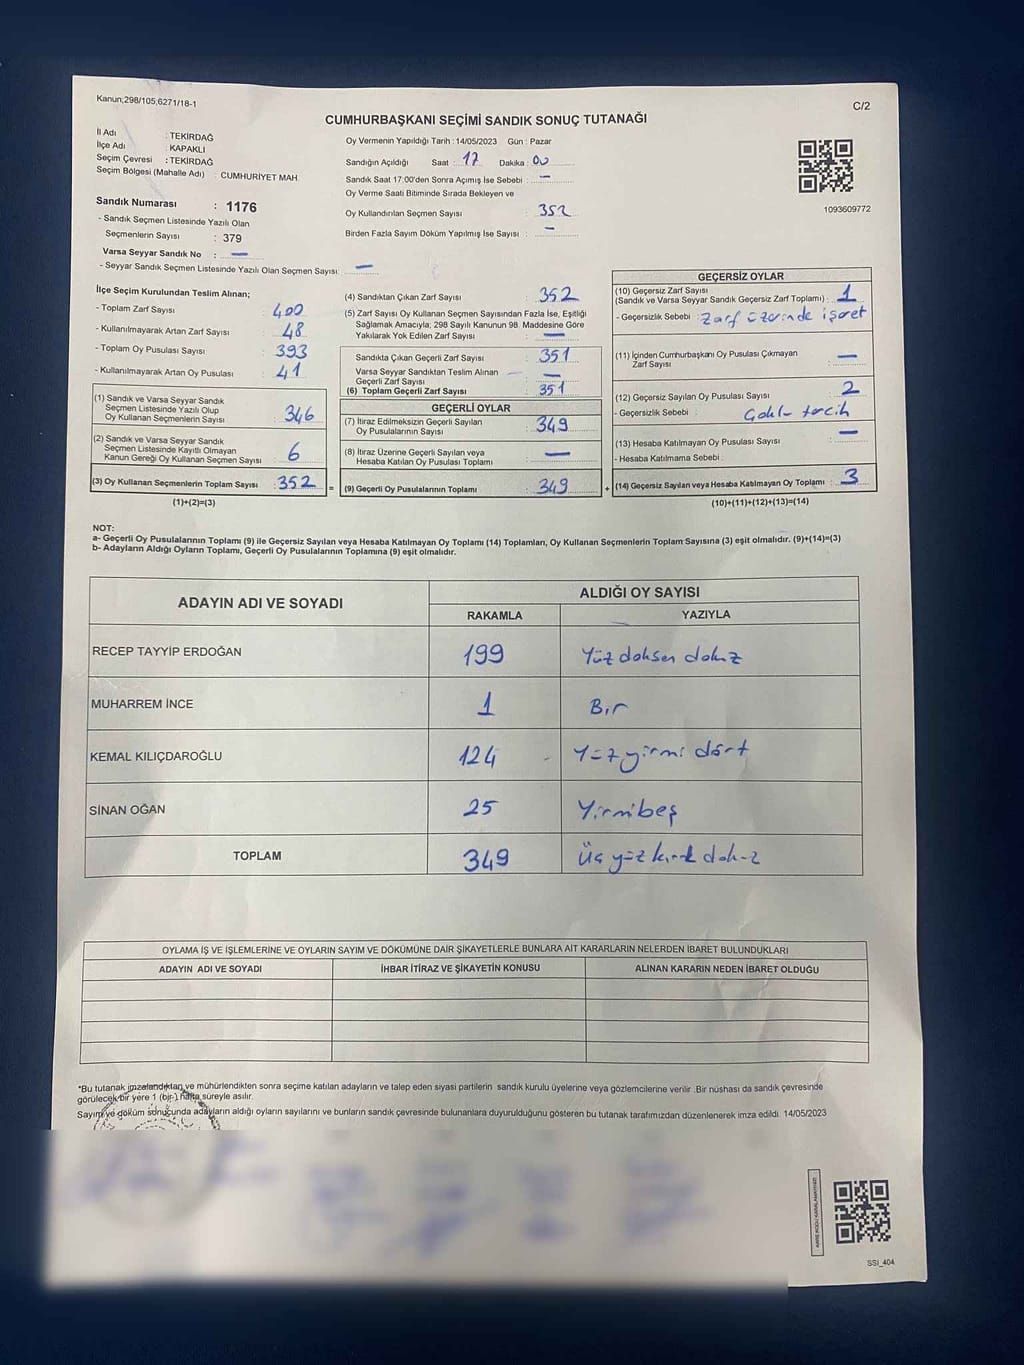 Kanun;298/105,6271/18-1
C/2
CUMHURBAŞKANI SEÇİMİ SANDIK SONUÇ TUTANAĞI
İl Adı : TEKİRDAĞ
İlçe Adı : KAPAKLI
Seçim Çevresi : TEKİRDAĞ
Seçim Bölgesi (Mahalle Adı) : CUMHURİYET MAH.
Sandık Numarası : 1176
- Sandık Seçmen Listesinde Yazılı Olan
Seçmenlerin Sayısı : 379
Varsa Seyyar Sandık No : —
- Seyyar Sandık Seçmen Listesinde Yazılı Olan Seçmen Sayısı: —
Oy Vermenin Yapıldığı Tarih : 14/05/2023 Gün : Pazar
Sandığın Açıldığı Saat : 17 Dakika : 00
Sandık Saat 17:00'den Sonra Açımış İse Sebebi : —
Oy Verme Saati Bitiminde Sırada Bekleyen ve
Oy Kullandırılan Seçmen Sayısı 352
Birden Fazla Sayım Döküm Yapılmış İse Sayısı : —
1093609772
İlçe Seçim Kurulundan Teslim Alınan;
- Toplam Zarf Sayısı : 400
- Kullanılmayarak Artan Zarf Sayısı : 48
- Toplam Oy Pusulası Sayısı : 393
- Kullanılmayarak Artan Oy Pusulası : 41
(1) Sandık ve Varsa Seyyar Sandık
Seçmen Listesinde Yazılı Olup
Oy Kullanan Seçmenlerin Sayısı : 346
(2) Sandık ve Varsa Seyyar Sandık
Seçmen Listesinde Kayıtlı Olmayan
Kanun Gereği Oy Kullanan Seçmen Sayısı : 6
(3) Oy Kullanan Seçmenlerin Toplam Sayısı : 352
(1)+(2)=(3)
=
(4) Sandıktan Çıkan Zarf Sayısı : 352
(5) Zarf Sayısı Oy Kullanan Seçmen Sayısından Fazla İse, Eşitliği
Sağlamak Amacıyla; 298 Sayılı Kanunun 98. Maddesine Göre
Yakılarak Yok Edilen Zarf Sayısı : —
Sandıkta Çıkan Geçerli Zarf Sayısı : 351
Varsa Seyyar Sandıktan Teslim Alınan
Geçerli Zarf Sayısı : —
(6) Toplam Geçerli Zarf Sayısı : 351
GEÇERLİ OYLAR
(7) İtiraz Edilmeksizin Geçerli Sayılan
Oy Pusulalarının Sayısı : 349
(8) İtiraz Üzerine Geçerli Sayılan veya
Hesaba Katılan Oy Pusulası Toplamı : —
(9) Geçerli Oy Pusulalarının Toplamı : 349
+
GEÇERSİZ OYLAR
(10) Geçersiz Zarf Sayısı
(Sandık ve Varsa Seyyar Sandık Geçersiz Zarf Toplamı) : 1
- Geçersizlik Sebebi : Zarf üzerinde işaret
(11) İçinden Cumhurbaşkanı Oy Pusulası Çıkmayan
Zarf Sayısı : —
(12) Geçersiz Sayılan Oy Pusulası Sayısı : 2
- Geçersizlik Sebebi : Çoklu tercih
(13) Hesaba Katılmayan Oy Pusulası Sayısı : —
- Hesaba Katılmama Sebebi :
(14) Geçersiz Sayılan veya Hesaba Katılmayan Oy Toplamı : 3
(10)+(11)+(12)+(13)=(14)
NOT:
a- Geçerli Oy Pusulalarının Toplamı (9) ile Geçersiz Sayılan veya Hesaba Katılmayan Oy Toplamı (14) Toplamları, Oy Kullanan Seçmenlerin Toplam Sayısına (3) eşit olmalıdır. (9)+(14)=(3)
b- Adayların Aldığı Oyların Toplamı, Geçerli Oy Pusulalarının Toplamına (9) eşit olmalıdır.
ADAYIN ADI VE SOYADI
ALDIĞI OY SAYISI
RAKAMLA YAZIYLA
RECEP TAYYİP ERDOĞAN 199 Yüz doksan dokuz
MUHARREM İNCE 1 Bir
KEMAL KILIÇDAROĞLU 124 Yüz yirmi dört
SİNAN OĞAN 25 Yirmibeş
TOPLAM 349 Üç yüz kırk dokuz
OYLAMA İŞ VE İŞLEMLERİNE VE OYLARIN SAYIM VE DÖKÜMÜNE DAİR ŞİKAYETLERLE BUNLARA AİT KARARLARIN NELERDEN İBARET BULUNDUKLARI
ADAYIN ADI VE SOYADI İHBAR İTİRAZ VE ŞİKAYETİN KONUSU ALINAN KARARIN NEDEN İBARET OLDUĞU
*Bu tutanak imzalandıktan ve mühürlendikten sonra seçime katılan adayların ve talep eden siyasi partilerin sandık kurulu üyelerine veya gözlemcilerine verilir .Bir nüshası da sandık çevresinde
görülecek bir yere 1 (bir) hafta süreyle asılır.
Sayım ve döküm sonucunda adayların aldığı oyların sayılarını ve bunların sandık çevresinde bulunanlara duyurulduğunu gösteren bu tutanak tarafımızdan düzenlenerek imza edildi. 14/05/2023
SSI_404